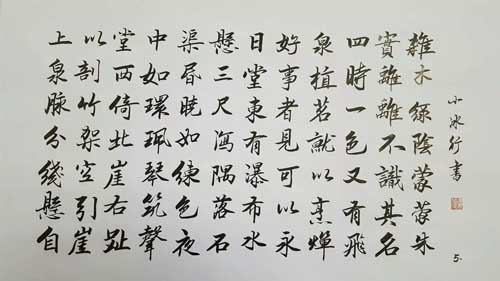 雜木綠陰蒙蒙朱
實離離不識其名
四時一色又有飛
泉植茗就以烹燀
好事者見可以永
日堂東有瀑布水
懸三尺瀉隅落石
渠昏曉如練色夜
中如環珮琴筑聲
堂西倚北崖右趾
以剖竹架空引崖
上泉脉分綫懸自
小冰行書
5.